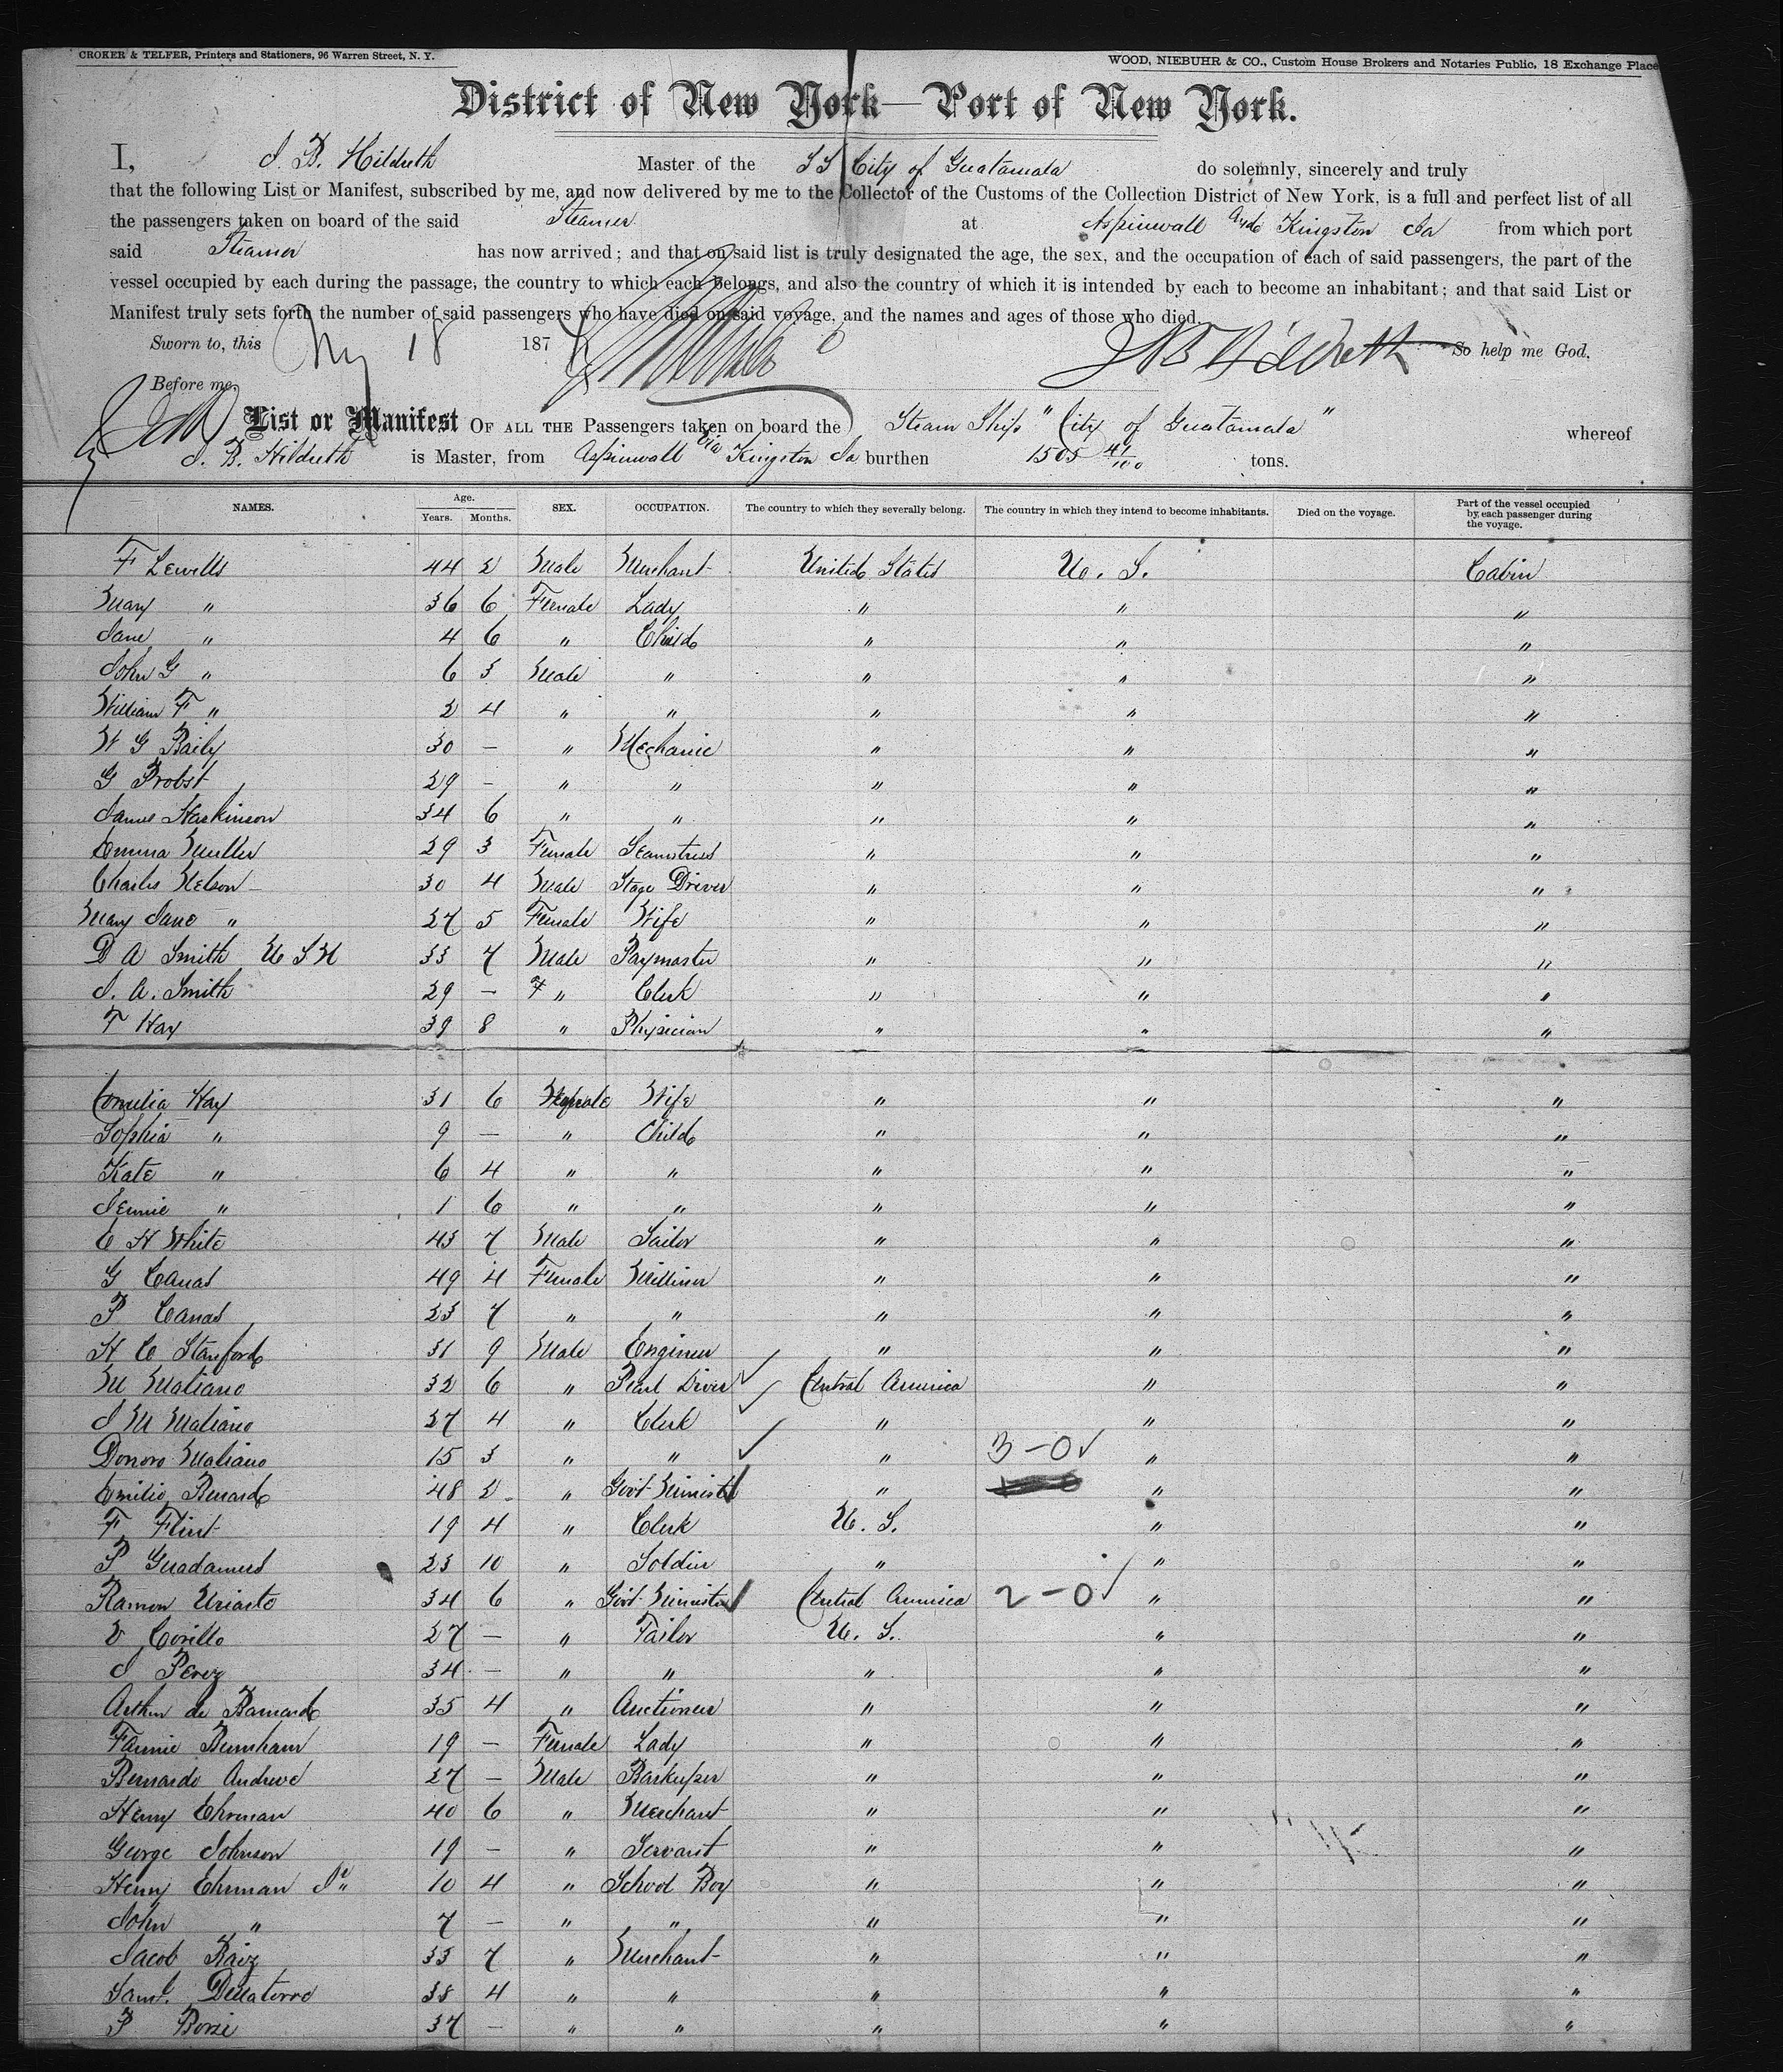 CROKER & TELFER, Printers and Stationers, 96 Warren Street, N. Y.
WOOD, NIEBUHR & CO., Custom House Brokers and Notaries Public, 18 Exchange Place
District of New York—Port of New York.
I, J. B. Hildreth Master of the SS City of Guatamala do solemnly, sincerely and truly
that the following List or Manifest, subscribed by me, and now delivered by me to the Collector of the Customs of the Collection District of New York, is a full and perfect list of all
the passengers taken on board of the said Steamer at Aspinwall and Kingston Ja from which port
said Steamer has now arrived; and that on said list is truly designated the age, the sex, and the occupation of each of said passengers, the part of the
vessel occupied by each during the passage, the country to which each belongs, and also the country of which it is intended by each to become an inhabitant; and that said List or
Manifest truly sets forth the number of said passengers who have died on said voyage, and the names and ages of those who died.
Sworn to, this 18 187 So help me God.
Before me,
List or Manifest OF ALL THE Passengers taken on board the Steam Ship "City of Guatamala" whereof
J. B. Hildreth is Master, from Aspinwall via Kingston Ja burthen 1505 41/100 tons.
NAMES. Age. Years. Months. SEX. OCCUPATION. The country to which they severally belong. The country in which they intend to become inhabitants. Died on the voyage. Part of the vessel occupied by each passenger during the voyage.
F Lewills 44 2 Male Merchant United States U. S. Cabin
Mary " 36 6 Female Lady " " "
Jane " 4 6 " Child " " "
John G " 6 3 Male " " " "
William F " 2 4 " " " " "
W G Baily 30 — " Mechanic " " "
G Probst 29 - " " " " "
James Harkinson 34 6 " " " " "
Emma Muller 29 3 Female Seamstress " " "
Charles Nelson 30 4 Male Stage Driver " " "
Mary Jane " 27 5 Female Wife " " "
D A Smith U S N 33 7 Male Paymaster " " "
J. A. Smith 29 — " Clerk " " "
T Hay 39 8 " Physician " " "
Cornelia Hay 31 6 Female Wife " " "
Sophia " 9 — " Child " " "
Kate " 6 4 " " " " "
Jennie " 1 6 " " " " "
C H White 43 7 Male Sailor " " "
G Canas 49 4 Female Milliner " " "
P Canas 23 7 " " " " "
H C Stanford 31 9 Male Engineer " " "
M Maliano 32 6 " Pearl Diver Central America " "
J M Maliano 27 4 " Clerk " " "
Donoro Maliano 15 3 " " " 3-0 " "
Emilio Benard 48 2 " Govt Minister " " "
F Flint 19 4 " Clerk U. S. " "
P Guadamus 23 10 " Soldier " " "
Ramon Uriarte 34 6 " Govt Minister Central America 2-0 " "
Corillo 27 — " Tailor U. S. " "
J Perez 34 — " " " " "
Arthur de Barnard 35 4 " Auctioneer " " "
Fannie Burnham 19 — Female Lady " " "
Bernardo Andrews 27 — Male Barkeeper " " "
Henry Ehrman 40 6 " Merchant " " "
George Johnson 19 — " Servant " " "
Henry Ehrman Jr 10 4 " School Boy " " "
John " 7 — " " " " "
Jacob Baiz 33 7 " Merchant " " "
Saml. Dellatorre 38 4 " " " " "
P 37 — " " " " "